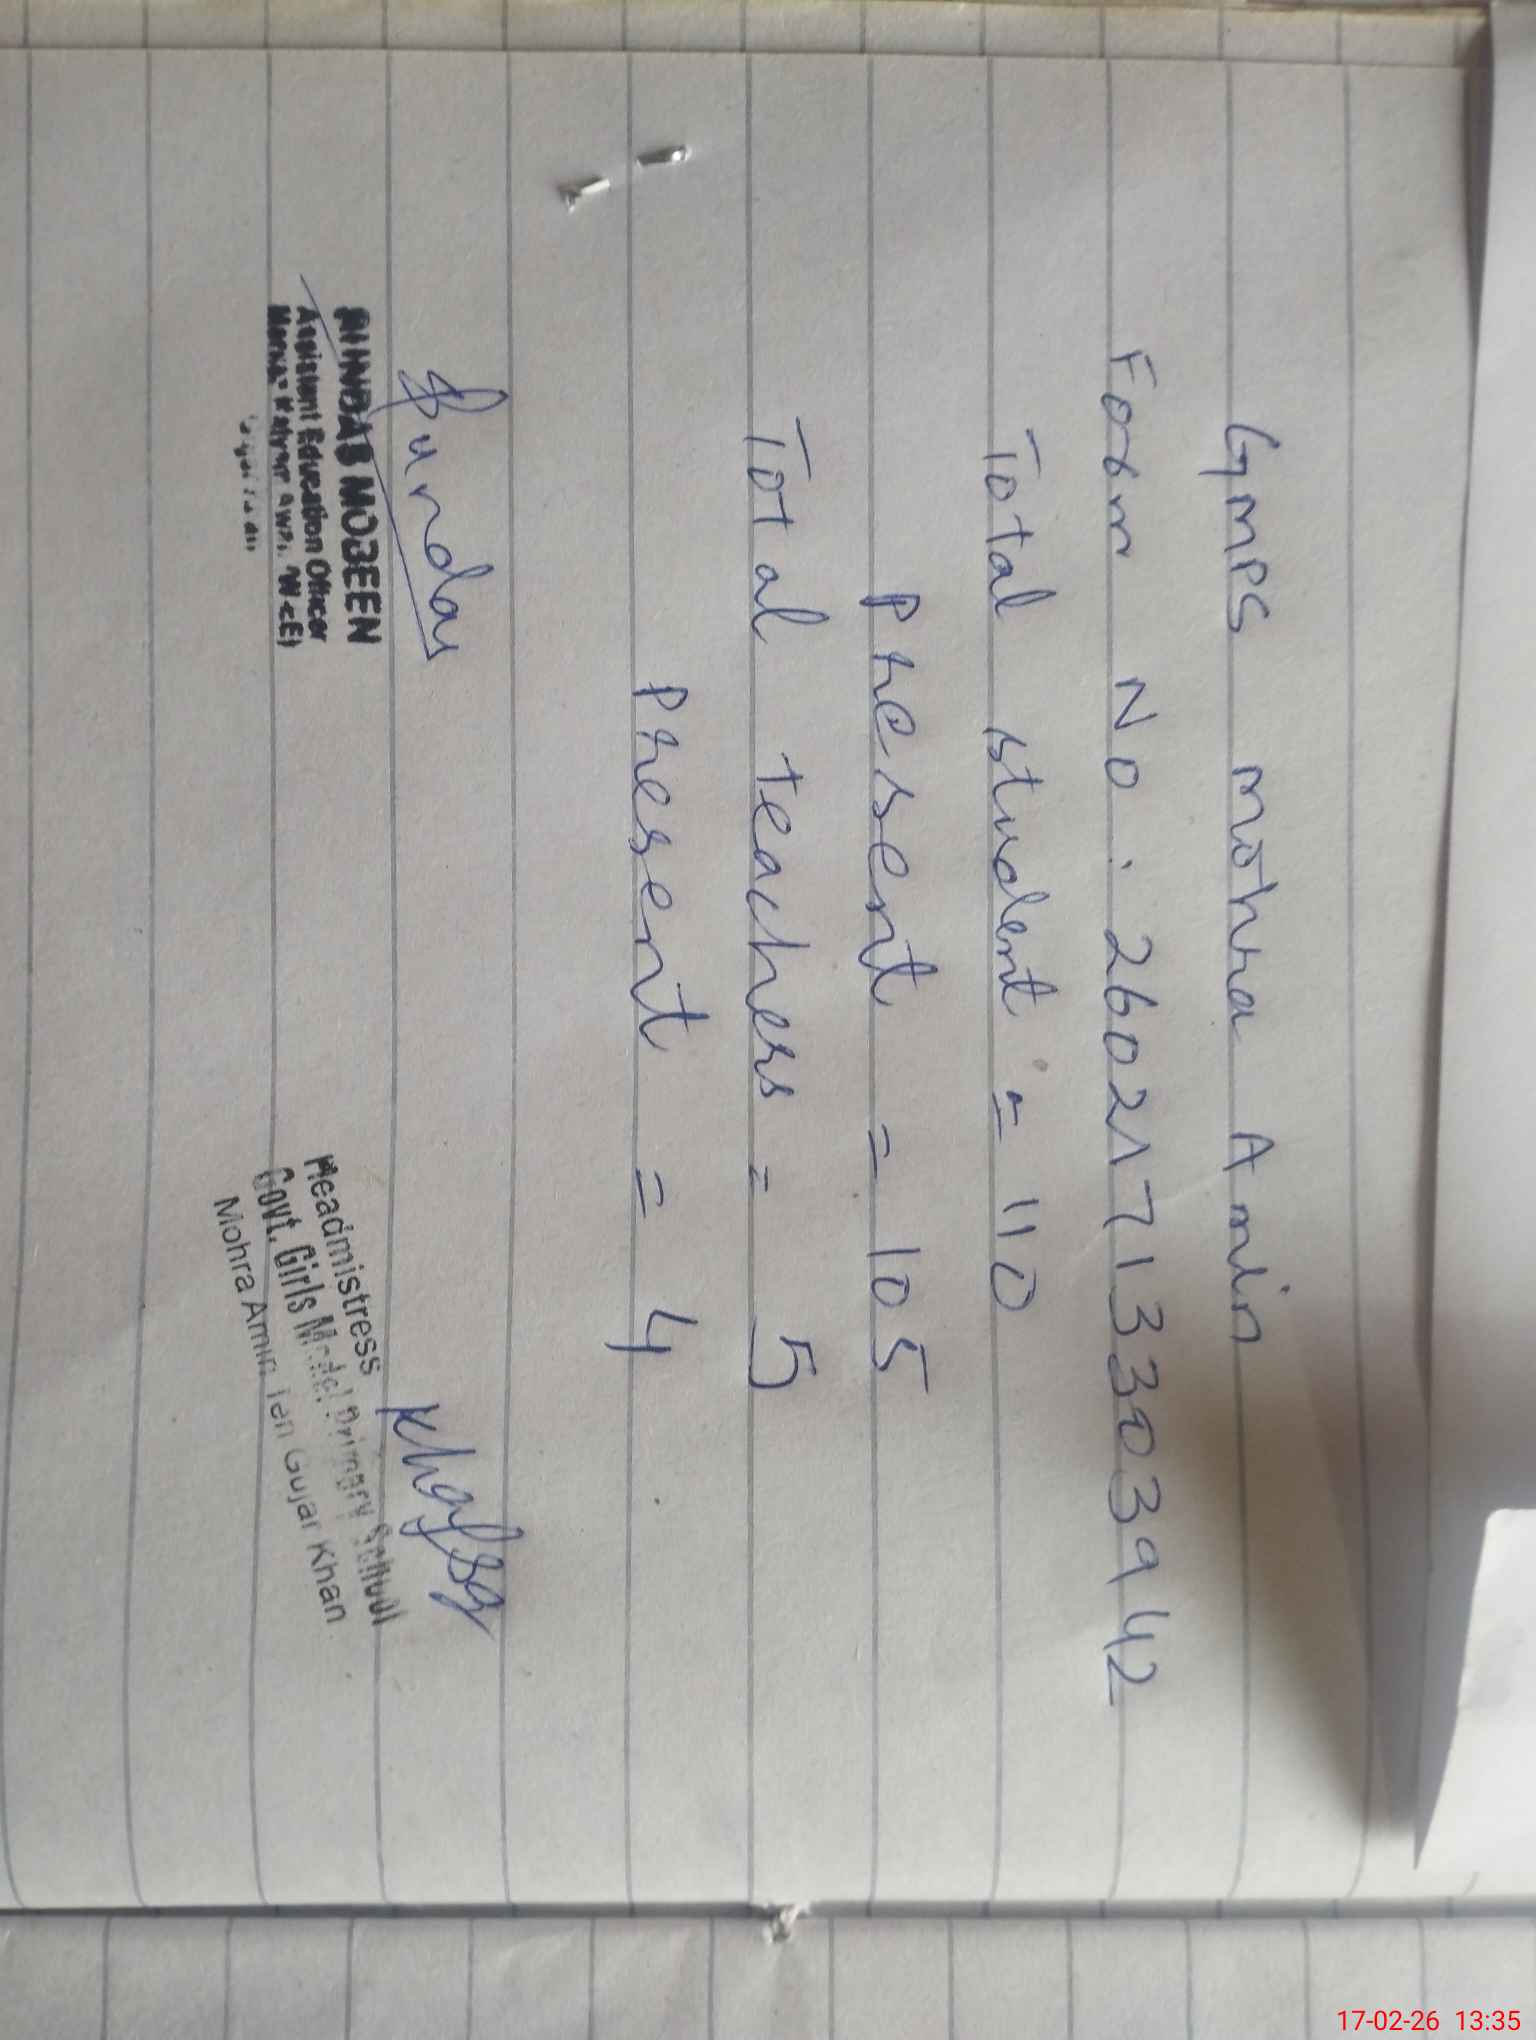 GMPS mohra Amin
Form No : 26021713303942
Total student = 110
Present = 105
Total teachers = 5
Present = 4
Sundas
Khafsa
SUNDAS MOBEEN
Assistent Education Officer
Headmistress
Govt. Girls Model Primary School
Mohra Amin Teh Gujar Khan
17-02-26 13:35